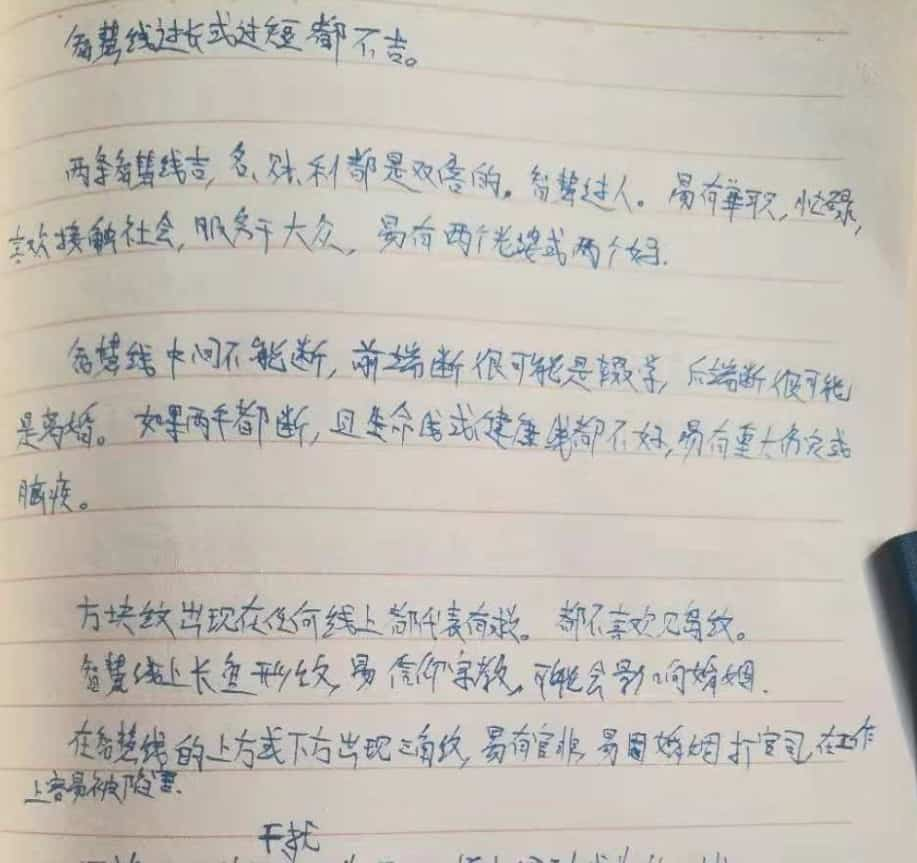 智慧线过长或过短都不吉。
两条智慧线吉,名、财、利都是双倍的。智慧过人。易有兼职,忙碌,
喜欢接触社会,服务于大众,易有两个老婆或两个妈.
智慧线中间不能断,前端断很可能是辍学,后端断很可能
是离婚。如果两手都断,且生命线或健康线都不好,易有重大伤灾或
脑疾。
方块纹出现在任何线上都代表有救。都不喜欢见岛纹。
智慧线上长鱼形纹,易信仰宗教,可能会影响婚姻.
在智慧线的上方或下方出现三角纹,易有官非,易因婚姻打官司,在工作
上容易被陷害.
干扰